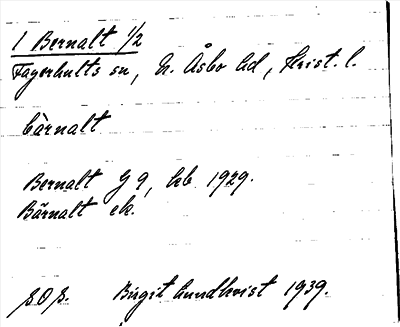 1 Bernalt 1/2
Fagerhults sn, N. Åsbo hd, Krist. l.
bärnalt
Bernalt G 9, kb. 1929.
Bärnalt ek.
S.O.S. Birgit Lundkvist 1939.